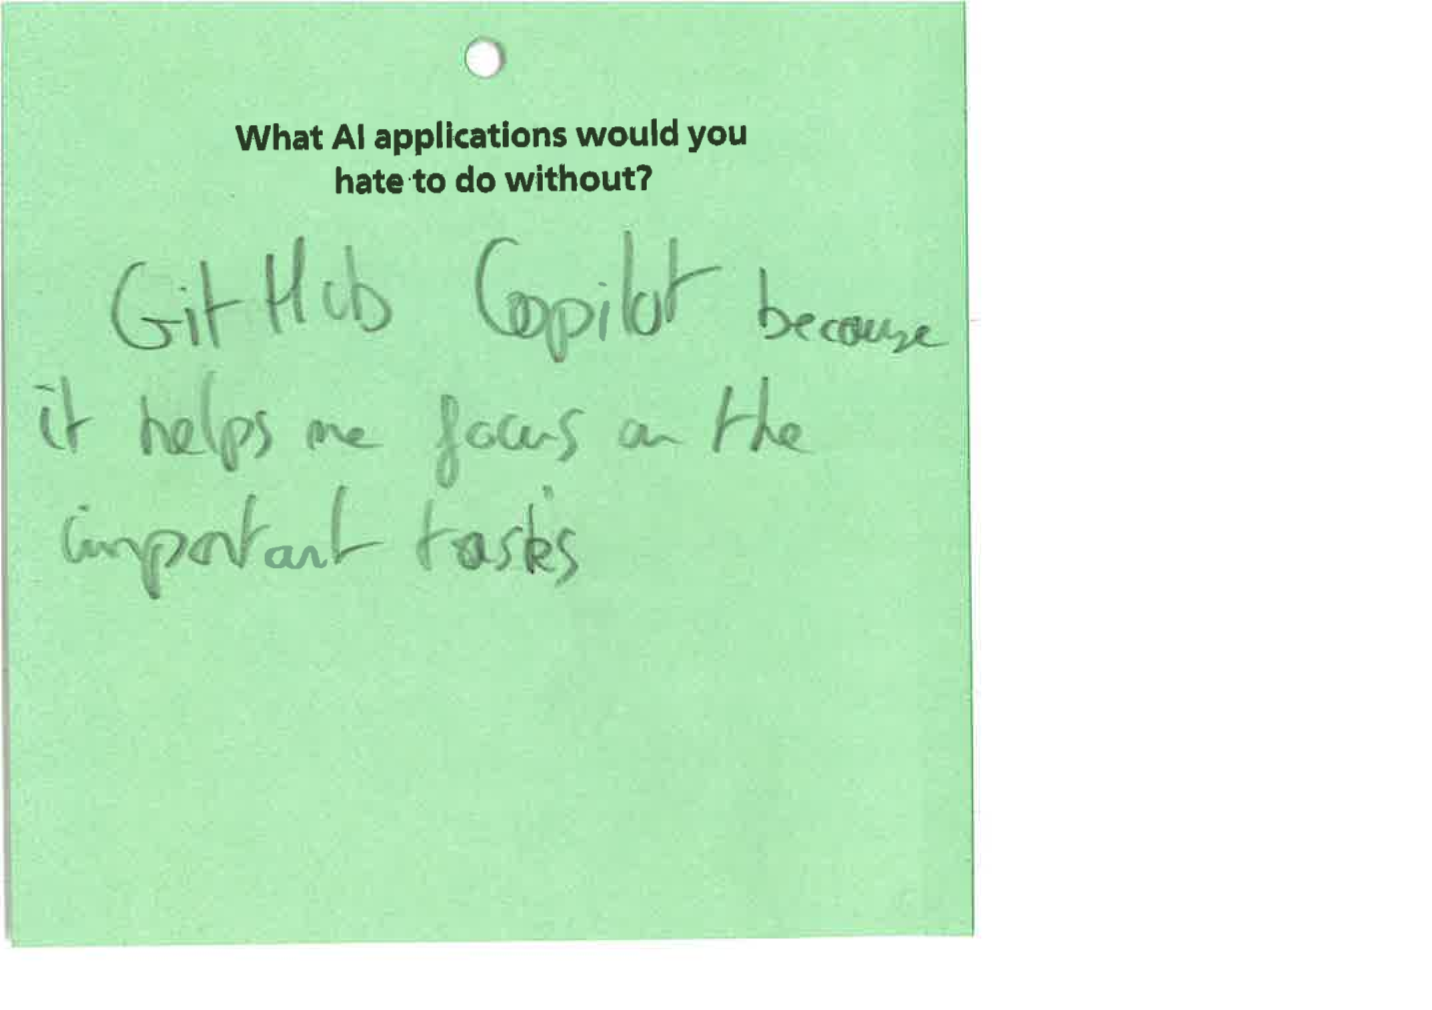 What AI applications would you
hate to do without?
GitHub Copilot because
it helps me focus on the
important tasks